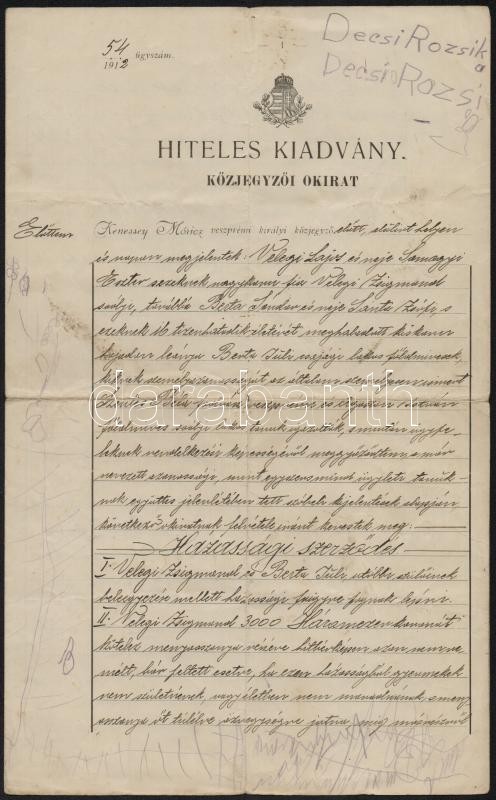 54
1912 ügyszám.
Decsi Rozsika
Decsi Rozsi
HITELES KIADVÁNY.
KÖZJEGYZŐI OKIRAT
Előttem
Kenessey Móricz veszprémi királyi közjegyző előtt, alulirt helyen
és napon megjelentek: Velegi Lajos és neje Somogyi
Eszter s ezeknek nagykorú fia Velegi Zsigmond
továbbá Berta Sándor és neje Sánta Zsófi, s
ezeknek 16 tizenhatodik életévét meghaladott kiskorú
hajadon leánya Berta Juli lakos földmivesek,
kiknek személyazonosságát az általam személyesen ismert
Béla
tanuk igazolták, s miután ügyfe-
leknek rendelkezési képességéről meggyőződtem, a már
nevezett azonossági, mint egyszersmind ügyleti tanuk-
nak együttes jelenlétében tett szóbeli kijelentések alapján
következő okiratnak felvétele iránt kerestek meg:
Házassági szerződés
I. Velegi Zsigmond és Berta Juli utóbbi szülőinek
beleegyezése mellett házassági frigyre fognak lépni.
II. Velegi Zsigmond 3000 Háromezer koronát
kötelez menyasszonya részére hitbérképen azon
bár feltett esetre, ha ezen házasságból gyermekek
nem születnének, vagy életben nem maradnának, s meny-
asszonya őt túlélve özvegységre jutna, míg
databanth